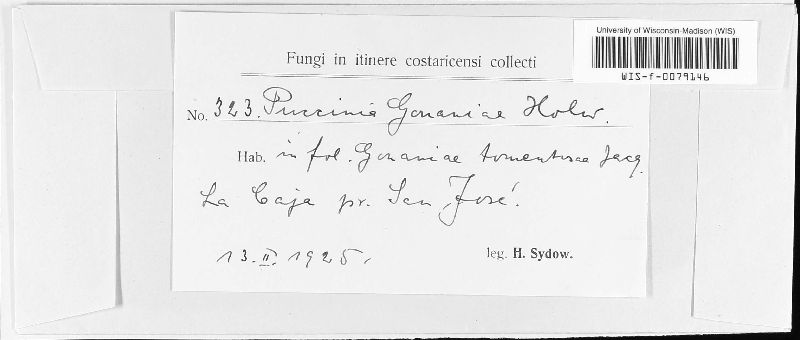 University of Wisconsin-Madison (WIS)
WIS-f-0079146
Fungi in itinere costaricensi collecti
No. 323. Puccinia Gouaniae Holw.
Hab. in fol. Gouaniae tomentosae Jacq.
La Caja pr. San José.
13. II. 1925.
leg. H. Sydow.